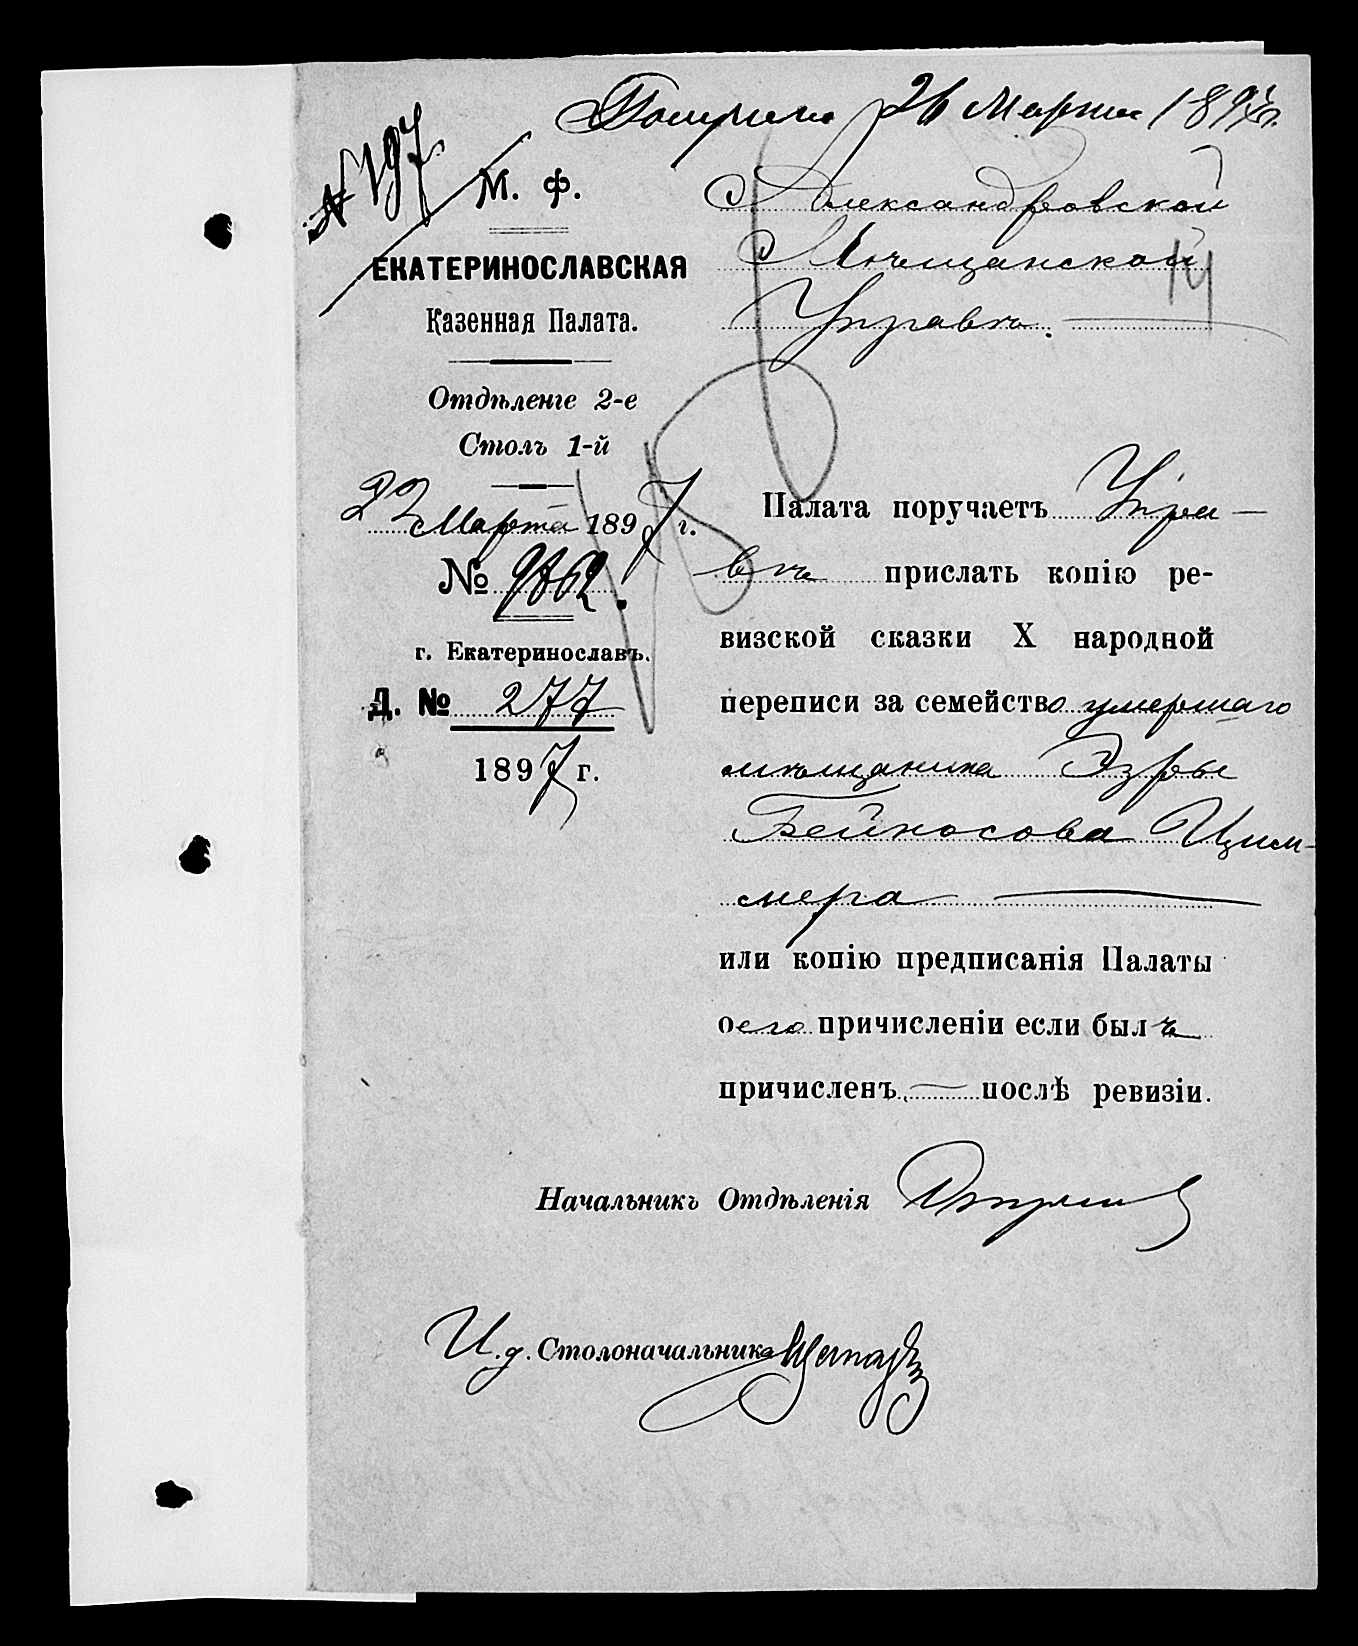 26 Марта 1897 г.
№ 197
М. Ф.
ЕКАТЕРИНОСЛАВСКАЯ
Казенная Палата.
Отдѣленіе 2-е
Столъ 1-й
22 Марта 1897 г.
№
г. Екатеринославъ.
Д. № 277
1897 г.
Александровской
Мѣщанской
Управѣ.
14
Палата поручаетъ Упра-
вѣ прислать копію ре-
визской сказки X народной
переписи за семейство умершаго
мѣщанина Эзры
Бейносова Цим-
мера
или копію предписанія Палаты
о его причисленіи если былъ
причисленъ — послѣ ревизіи.
Начальникъ Отдѣленія
И. д. Столоначальника